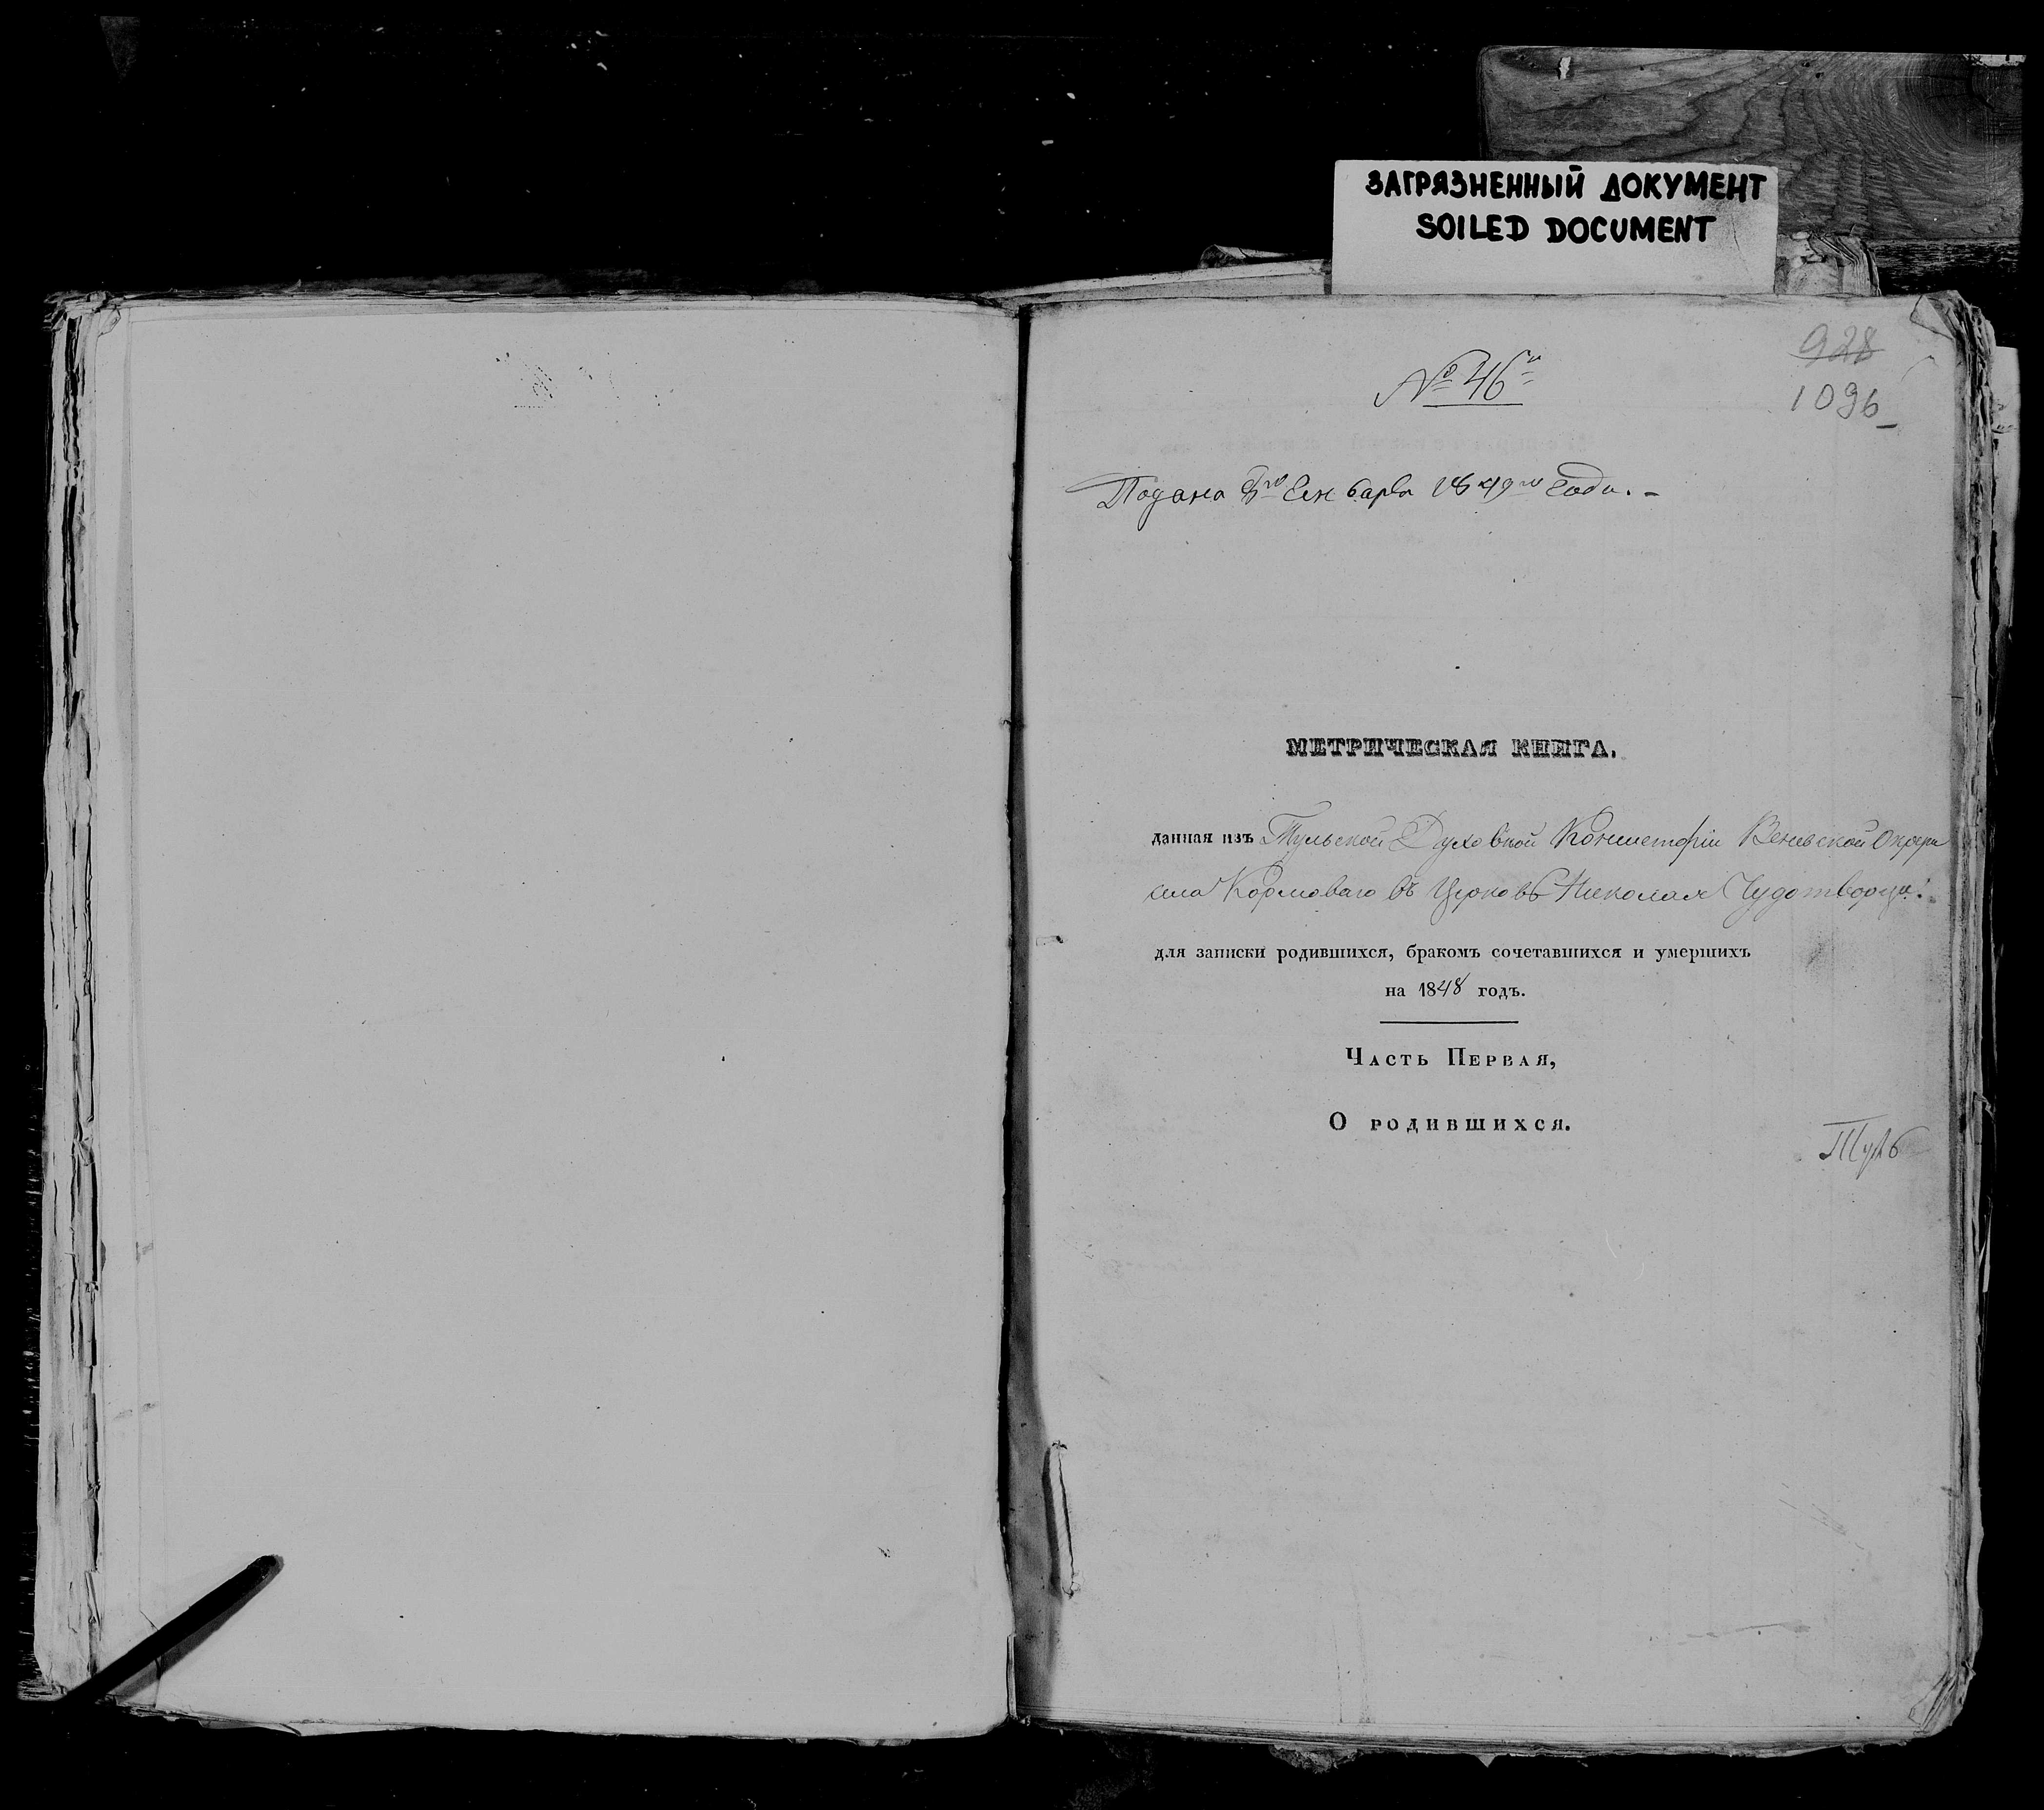 ЗАГРЯЗНЕННЫЙ ДОКУМЕНТ
SOILED DOCUMENT
928
1096
№ 46й
Подана го Генваря 1849го года.
МЕТРИЧЕСКАЯ КНИГА,
данная изъ Тульской Духовной Консисторіи Веневской Округи
села Кормоваго въ Церковь Николая Чудотворца.
для записки родившихся, бракомъ сочетавшихся и умершихъ
на 1848 годъ.
Часть Первая,
О родившихся.